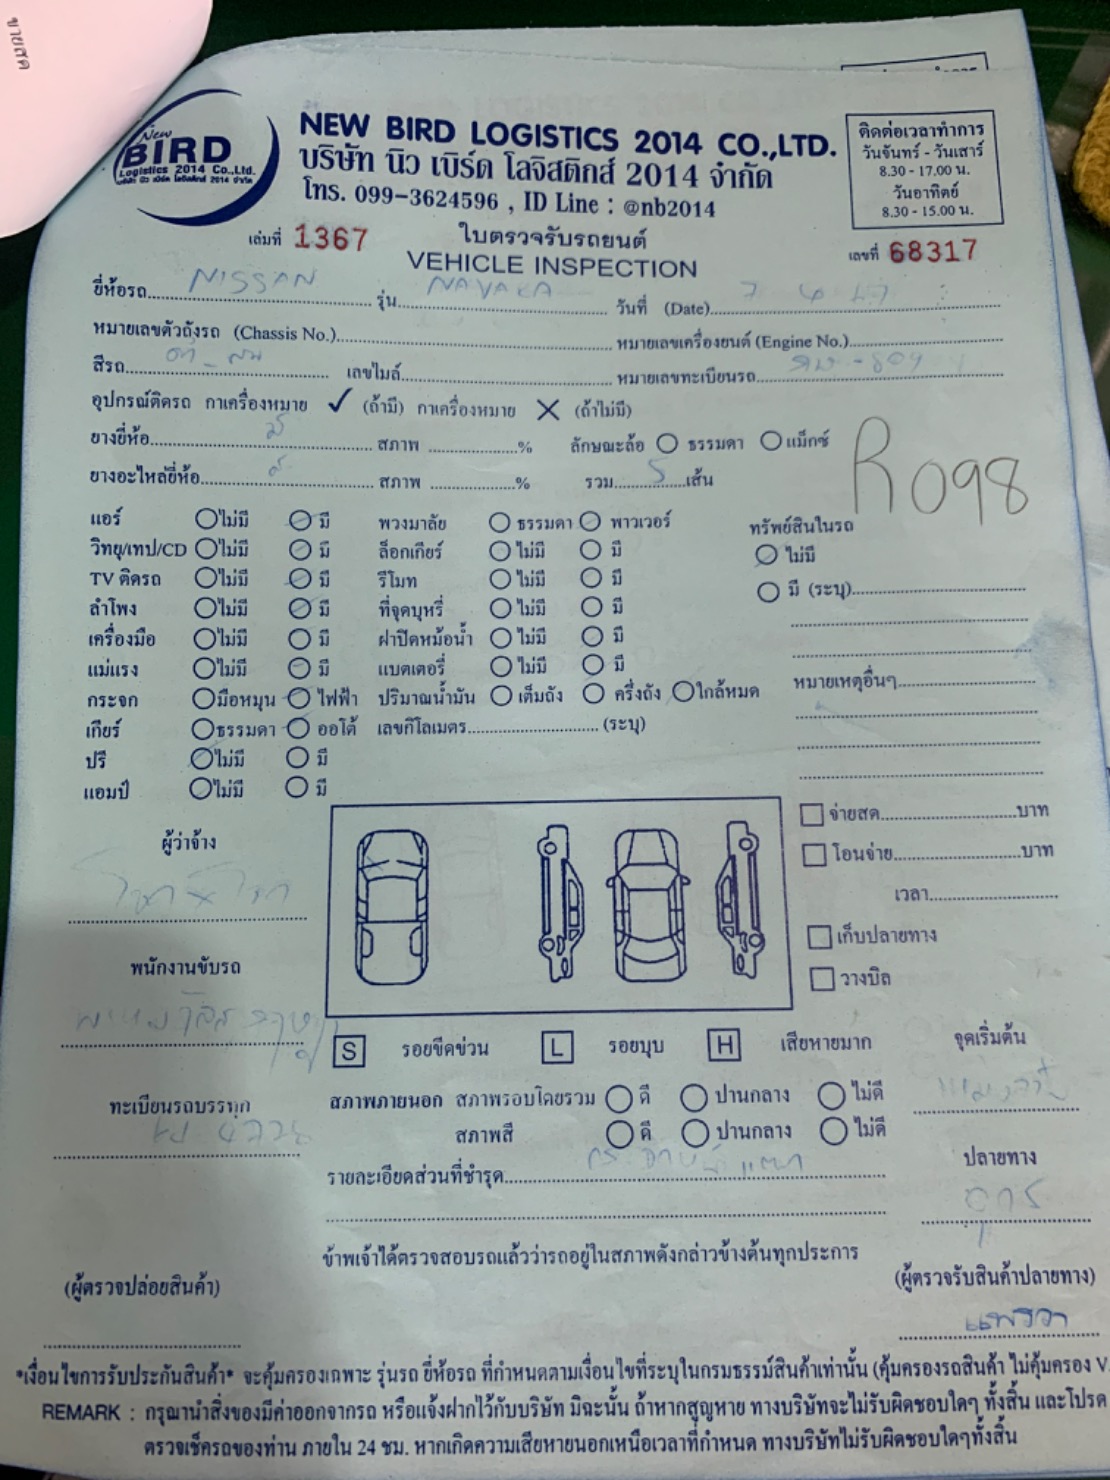 ขายสด
New
BIRD
Logistics 2014 Co.,Ltd.
บริษัท นิว เบิร์ด โลจิสติกส์ 2014 จำกัด
NEW BIRD LOGISTICS 2014 CO.,LTD.
บริษัท นิว เบิร์ด โลจิสติกส์ 2014 จำกัด
โทร. 099-3624596 , ID Line : @nb2014
ติดต่อเวลาทำการ
วันจันทร์ - วันเสาร์
8.30 - 17.00 น.
วันอาทิตย์
8.30 - 15.00 น.
เล่มที่ 1367
ใบตรวจรับรถยนต์
เลขที่ 68317
VEHICLE INSPECTION
ยี่ห้อรถ NISSAN รุ่น NAVARA วันที่ (Date)
หมายเลขตัวถังรถ (Chassis No.) หมายเลขเครื่องยนต์ (Engine No.)
สีรถ เลขไมล์ หมายเลขทะเบียนรถ
อุปกรณ์ติดรถ กาเครื่องหมาย ✓ (ถ้ามี) กาเครื่องหมาย ✕ (ถ้าไม่มี)
ยางยี่ห้อ มี สภาพ % ลักษณะล้อ ธรรมดา แม็กซ์
ยางอะไหล่ยี่ห้อ สภาพ % รวม 5 เส้น
R098
แอร์ ไม่มี มี พวงมาลัย ธรรมดา พาวเวอร์ ทรัพย์สินในรถ
วิทยุ/เทป/CD ไม่มี มี ล็อกเกียร์ ไม่มี มี ไม่มี
TV ติดรถ ไม่มี มี รีโมท ไม่มี มี มี (ระบุ)
ลำโพง ไม่มี มี ที่จุดบุหรี่ ไม่มี มี
เครื่องมือ ไม่มี มี ฝาปิดหม้อน้ำ ไม่มี มี
แม่แรง ไม่มี มี แบตเตอรี่ ไม่มี มี หมายเหตุอื่นๆ
กระจก มือหมุน ไฟฟ้า ปริมาณน้ำมัน เต็มถัง ครึ่งถัง ใกล้หมด
เกียร์ ธรรมดา ออโต้ เลขกิโลเมตร (ระบุ)
ปรี ไม่มี มี
แอมป์ ไม่มี มี
จ่ายสด บาท
ผู้ว่าจ้าง
โอนจ่าย บาท
เวลา
เก็บปลายทาง
พนักงานขับรถ
วางบิล
S รอยขีดข่วน L รอยบุบ H เสียหายมาก จุดเริ่มต้น
ทะเบียนรถบรรทุก สภาพภายนอก สภาพรอบโดยรวม ดี ปานกลาง ไม่ดี
สภาพสี ดี ปานกลาง ไม่ดี
รายละเอียดส่วนที่ชำรุด ปลายทาง
ข้าพเจ้าได้ตรวจสอบรถแล้วว่ารถอยู่ในสภาพดังกล่าวข้างต้นทุกประการ
(ผู้ตรวจปล่อยสินค้า) (ผู้ตรวจรับสินค้าปลายทาง)
แพรวา
*เงื่อนไขการรับประกันสินค้า* จะคุ้มครองเฉพาะ รุ่นรถ ยี่ห้อรถ ที่กำหนดตามเงื่อนไขที่ระบุในกรมธรรม์สินค้าเท่านั้น (คุ้มครองรถสินค้า ไม่คุ้มครอง V
REMARK : กรุณานำสิ่งของมีค่าออกจากรถ หรือแจ้งฝากไว้กับบริษัท มิฉะนั้น ถ้าหากสูญหาย ทางบริษัทจะไม่รับผิดชอบใดๆ ทั้งสิ้น และโปรด
ตรวจเช็ครถของท่าน ภายใน 24 ชม. หากเกิดความเสียหายนอกเหนือเวลาที่กำหนด ทางบริษัทไม่รับผิดชอบใดๆทั้งสิ้น